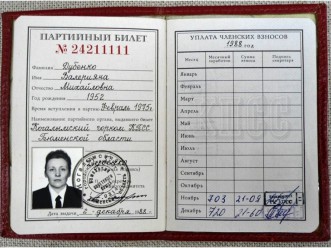 ПАРТИЙНЫЙ БИЛЕТ
№ 24211111
Фамилия Дубенко
Имя Валерияна
Отчество Михайловна
Год рождения 1952
Время вступления в партию Февраль 1975г.
Наименование партийного органа, выдавшего билет
Когалымский горком КПСС
Тюменской области
Дата выдачи 2 декабря 1988
УПЛАТА ЧЛЕНСКИХ ВЗНОСОВ
1988 год
Месяц Месячный заработок Сумма взноса Подпись секретаря
Январь
Февраль
Март
Апрель
Май
Июнь
Июль
Август
Сентябрь
Октябрь
Ноябрь 703 21-09
Декабрь 720 21-60